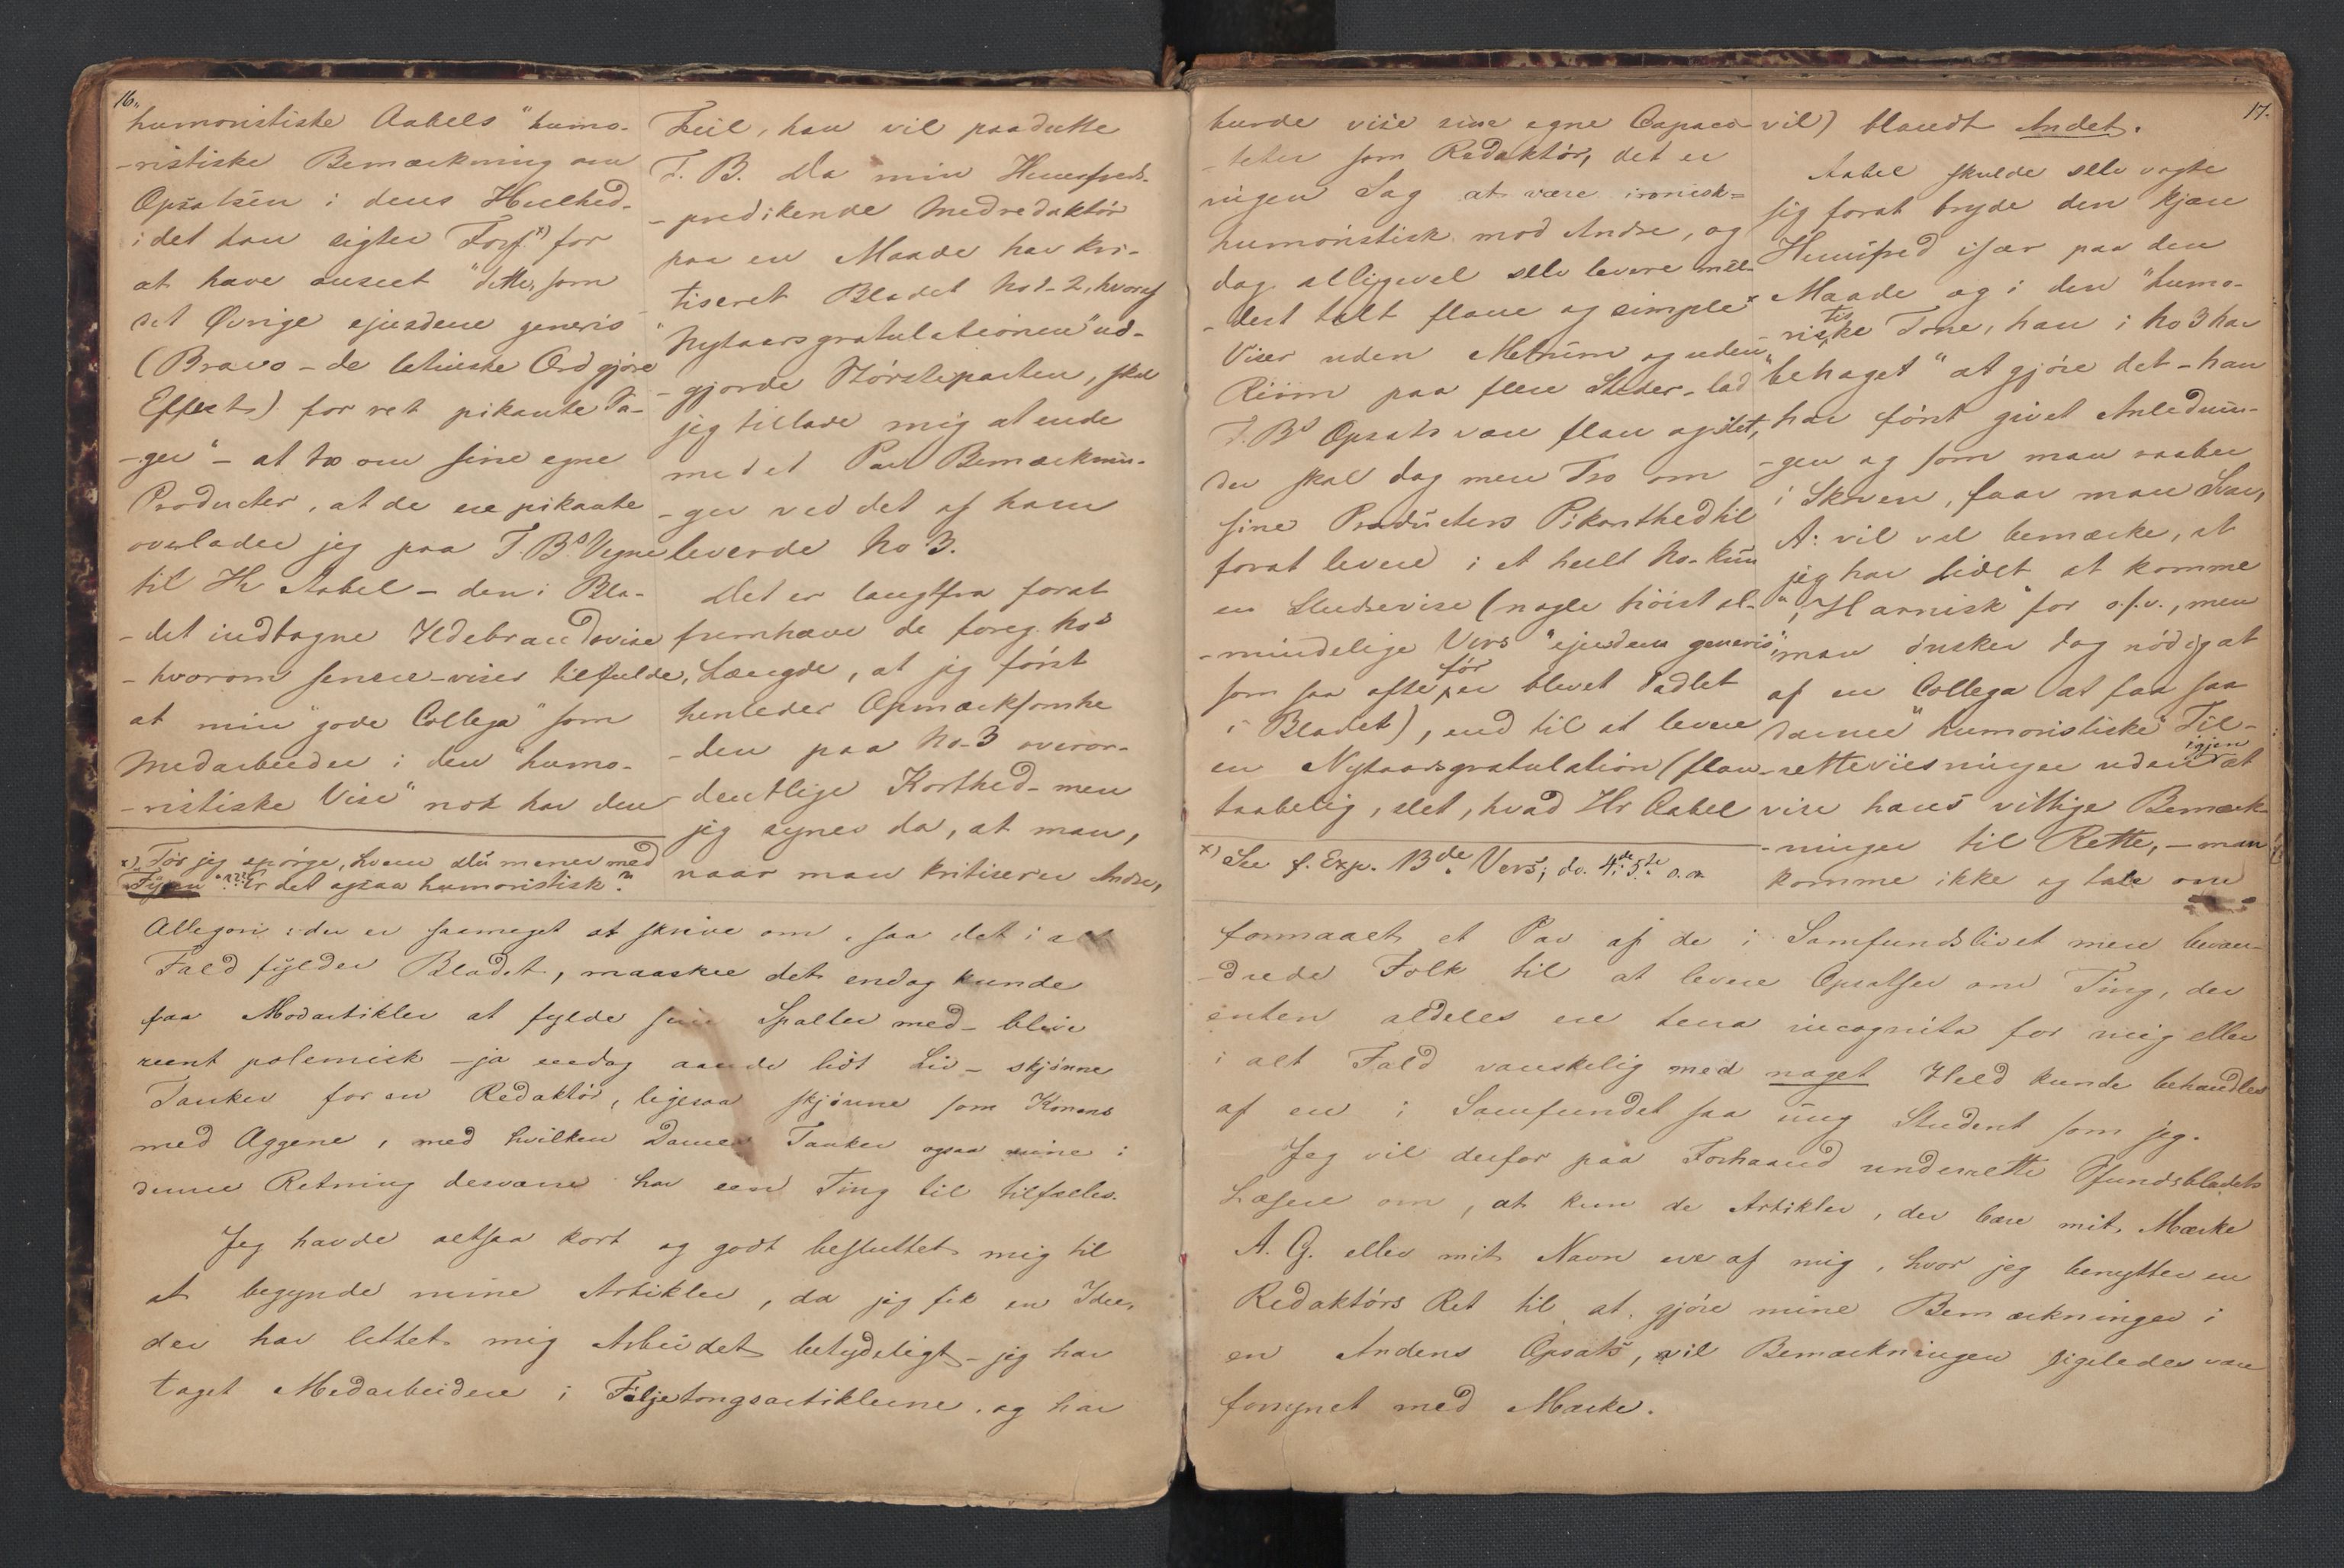 16.
humoristiske Aabels "humo-
-ristiske Bemærkning om
Opsatsen i dens Heelhed-
idet han sigter Forf.x) for
at have anseet "dette, som
det Øvrige ejusdem generis
(Bravo - de latinske Ord gjøre
Effect) for ret pikante Sa-
-ger" - at tro om sine egne
Producter, at de ere pikante
overlader jeg paa T.Bs Vegne
til Hr Aabel - den i Bla-
-det indtagne Ildebrandsvise
- hvorom senere - viser tilfulde,
at min "gode Collega" som
Medarbeider i den "humo-
-ristiske Vise" nok har den
x) Tør jeg spørge, hvem du mener med
"Fyren"??? Er det ogsaa humoristisk?
Feil, han vil paadutte
T. B. Da min Huusfreds-
-predikende Medredaktør
paa en Maade har kri-
tiseret Bladet No 1-2, hvoraf
"Nytaarsgratulationen" ud-
-gjorde Størsteparten, skal
jeg tillade mig at ende
med et Par Bemærknin-
-ger ved det af ham
leverede No 3.
Det er langtfra forat
fremhæve de foreg. Nos
Længde, at jeg først
henleder Opmærksomhe
-den paa No-3 overor-
-dentlige Korthed - men
jeg synes da, at man,
naar man kritiserer Andre,
Allegori: der er saameget at skrive om, saa det i alt
Fald fylder Bladet, maaskee det endog kunde
faa Modartikler at fylde sine Spalter med - blive
reent polemisk - ja endog aande lidt Liv - skjønne
Tanker for en Redaktør, ligesaa skjønne som Konens
med Æggene, med hvilken Dames Tanker ogsaa mine i
denne Retning desværre har een Ting til tilfælles.
Jeg havde altsaa kort og godt besluttet mig til
at begynde mine Artikler, da jeg fik en Idee,
der har lettet mig Arbeidet betydeligt - jeg har
taget Medarbeidere i Føljetongsartiklerne, og har
17.
burde vise sine egne Capaci-
-teter som Redaktør, det er
ingen Sag at være ironisk-
humoristisk mod Andre, og
dog alligevel selv levere mil-
-dest talt flaue og simplex
Viser uden Metrum og uden
Riim paa flere Steder - lad
T.Bs Opsats være flau og slet,
der skal dog mere Tro om
sine Producters Pikanthed til
forat levere i et heelt No. kun
en Studsevise (nogle høist al-
-mindelige Vers "ejusdem generis"
som saa ofte før er blevet dadlet
i Bladet), end til at levere
en Nytaarsgratulation (flau
taabelig, slet, hvad Hr Aabel
x) See f. Exp. 13de Vers, do. 4de, 5te o.a
vil) blandt Andet.
Aabel skulde selv vogte
sig forat bryde den kjære
Huusfred især paa den
Maade og i den "humo-
-ristiske Tone, han i No 3 har
"behaget" at gjøre det - han
har først givet Anlednin-
-gen og som man raaber
i Skoven, faar man Svar,
A: vil vel bemærke, at
jeg har lidet at komme
"i Harnisk" for o.s.v., men
man ønsker dog nødig at
af en Collega at faa saa
danne "humoristiske" Til-
-retteviisninger uden igjen at
vise hans vittige Bemærk-
-ninger til Rette, - man
komme ikke og tale om
formaaet et Par af de i Samfundslivet mere bevan-
-drede Folk til at levere Opsatser om Ting, der
enten aldeles ere terra incognita for mig eller
i alt Fald vanskelig med noget Held kunde behandles
af en i Samfundet saa ung Student som jeg.
Jeg vil derfor paa Forhaand underrette Sfundsbladets
Læsere om, at kun de Artikler, der bære mit Mærke
A. G. eller mit Navn ere af mig, hvor jeg benytter en
Redaktørs Ret til at gjøre mine Bemærkninger i
en Andens Opsats, vil Bemærkningen ligeledes være
forsynet med Mærke.